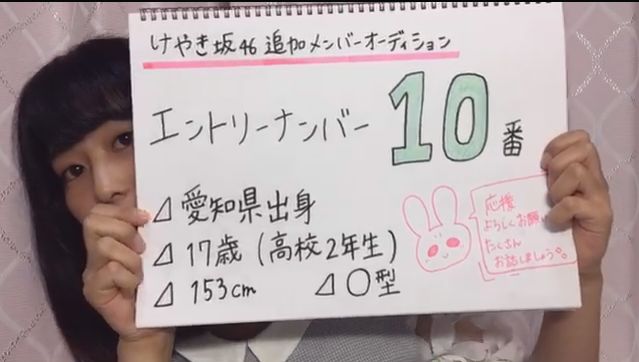 けやき坂46 追加メンバーオーディション
エントリーナンバー 10番
⊿ 愛知県出身
⊿ 17歳 (高校2年生)
⊿ 153cm ⊿ ○型
応援
よろしくお願
たくさん
お話しましょう